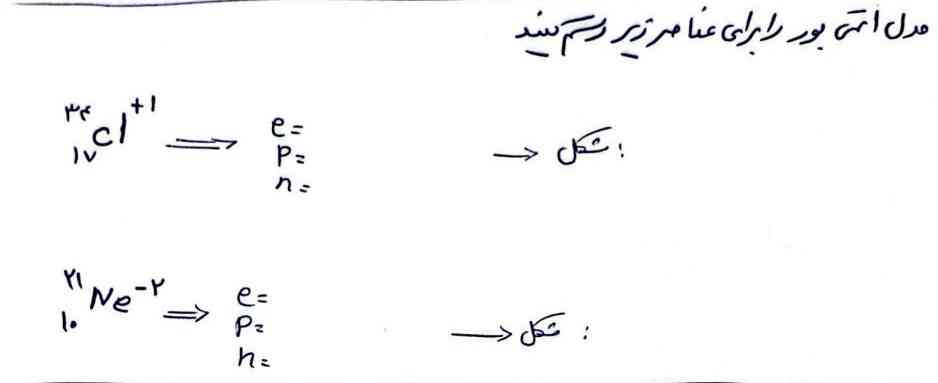 مدل اتمی بور را برای عناصر زیر رسم کنید
۳۴
۱۷Cl+۱ ⟹ e=
P=
n=
→ شکل:
۲۱
۱۰Ne-۲ ⟹ e=
P=
n=
→ شکل: